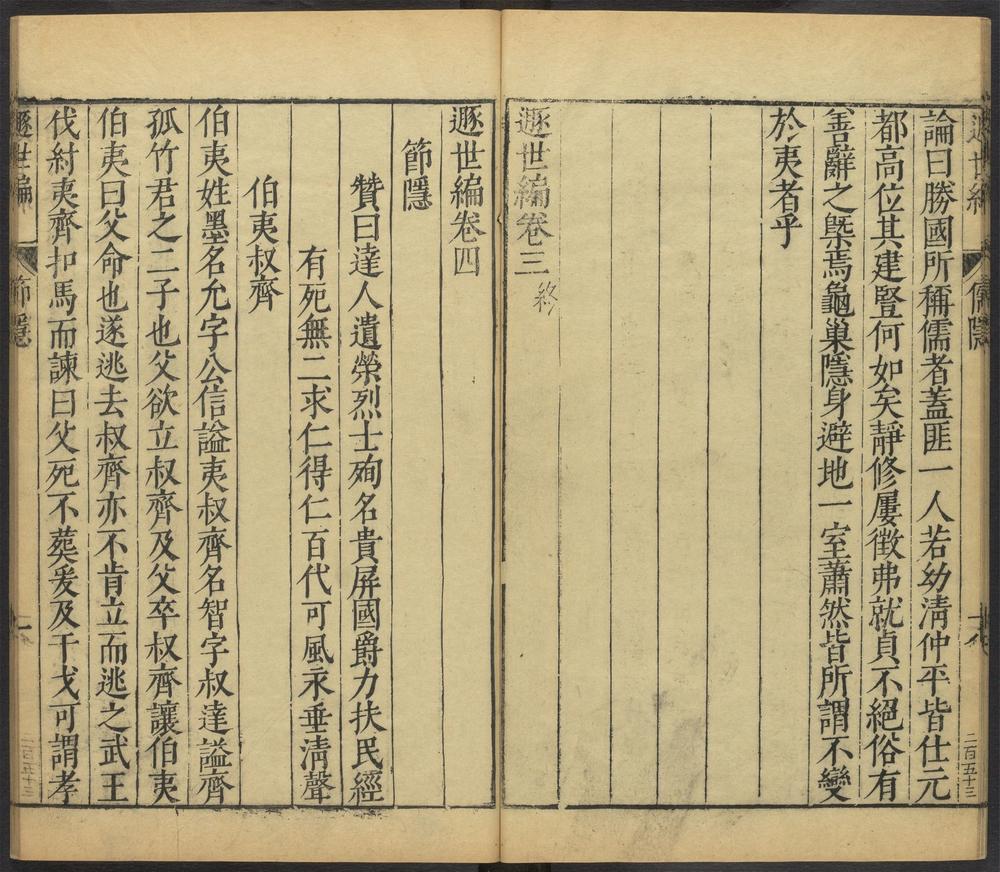 遯世編 儒隱 十八 二百五十三
論曰勝國所稱儒者蓋匪一人若幼清仲平皆仕元
都高位其建豎何如矣靜修屢徵弗就貞不絕俗有
善辭之槩焉龜巢隱身避地一室蕭然皆所謂不變
於夷者乎
遯世編卷三 終
遯世編卷四
節隱
贊曰達人遺榮烈士殉名貴屏國爵力扶民經
有死無二求仁得仁百代可風永垂清聲
伯夷叔齊
伯夷姓墨名允字公信謚夷叔齊名智字叔達謚齊
孤竹君之二子也父欲立叔齊及父卒叔齊讓伯夷
伯夷曰父命也遂逃去叔齊亦不肯立而逃之武王
伐紂夷齊扣馬而諫曰父死不葬爰及干戈可謂孝
遯世編 節隱 一 二百五十三